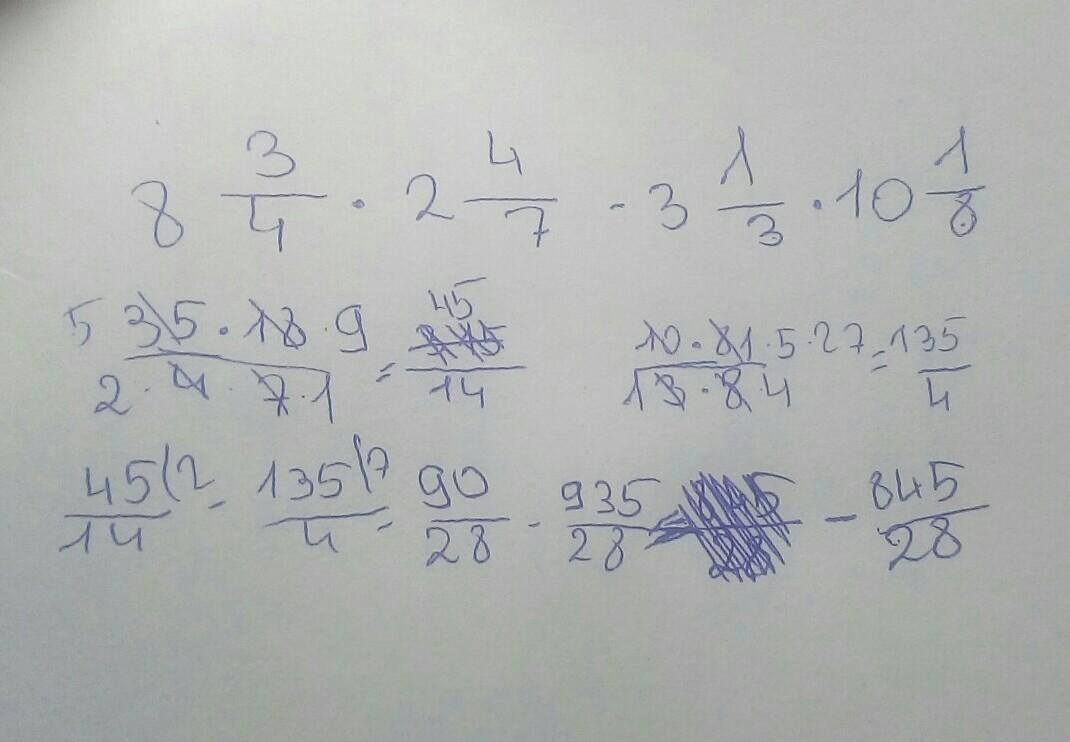 8 3/4 · 2 4/7 - 3 1/3 · 10 1/8
5 35 · 18 · 9 / 2 · 4 · 7 · 1 = 45/14 10 · 81 · 5 · 27 / 1 3 · 8 4 = 135/4
45/14 (2 - 135/4 (7 = 90/28 - 935/28 = - 845/28